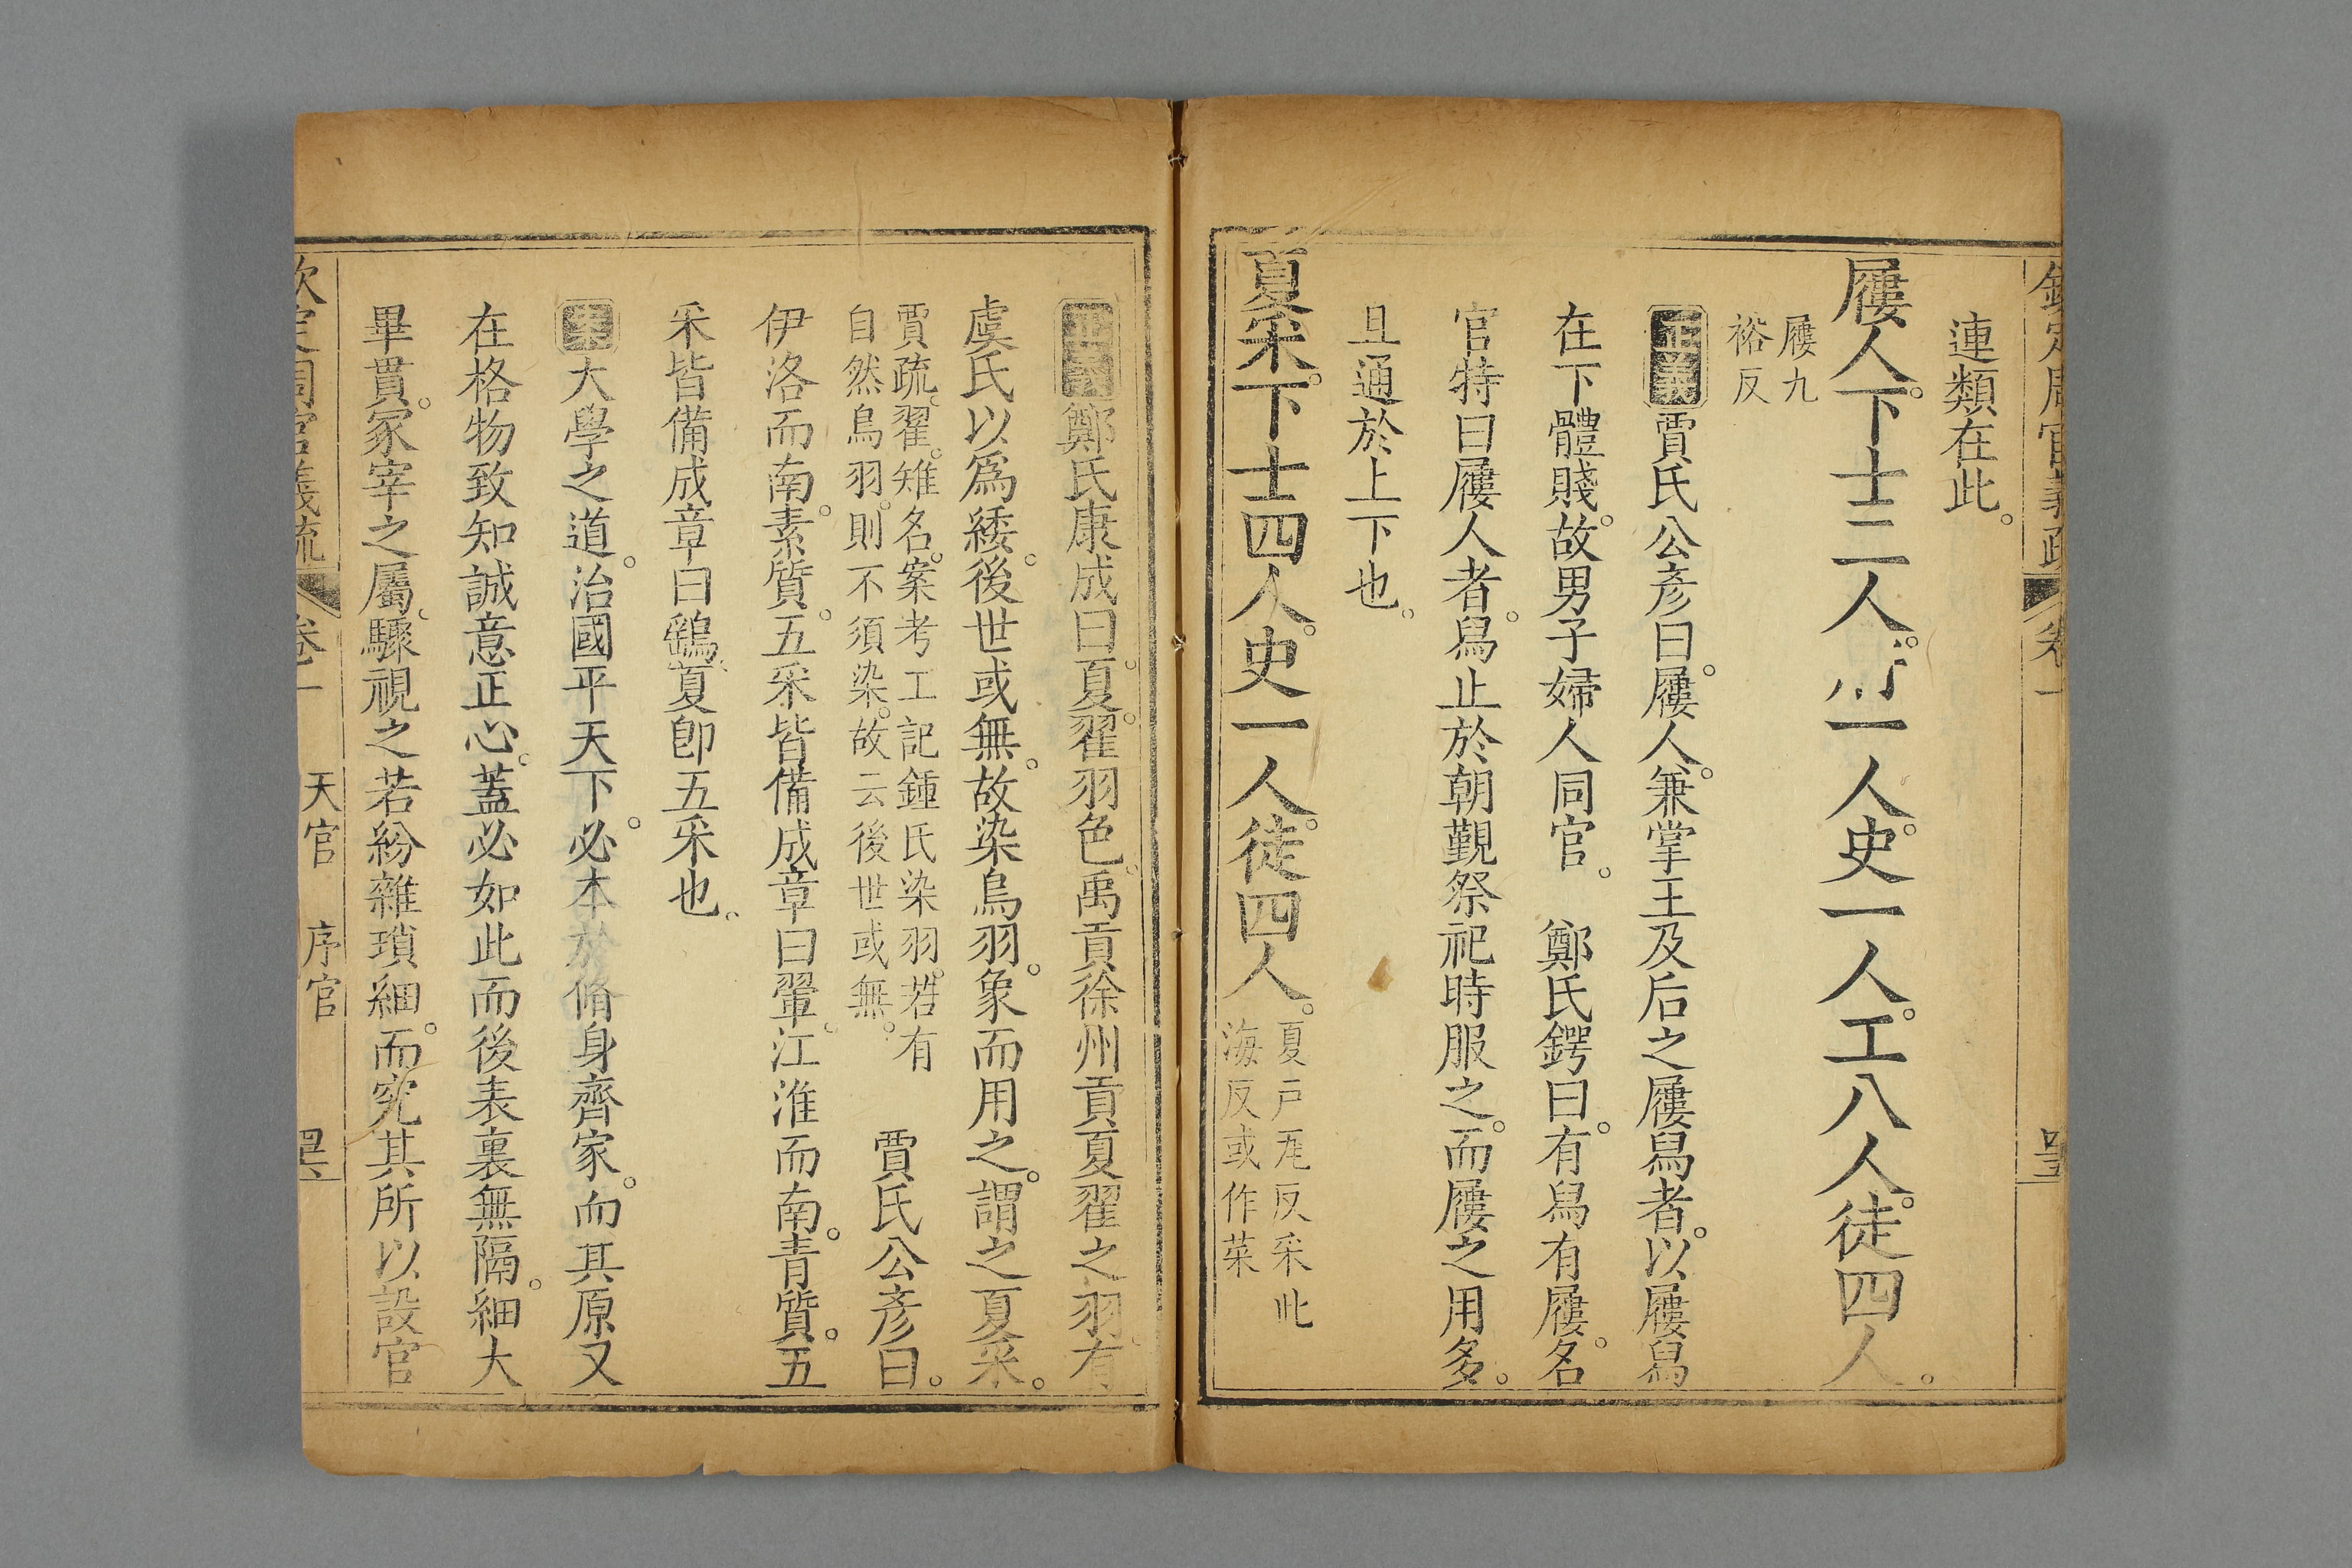 欽定周官義疏 卷一 
連類在此。
屨人。下士二人。府一人。史一人。工八人。徒四人。
屨九
裕反
正義賈氏公彥曰。屨人。兼掌王及后之屨舄者。以屨舄
在下體賤。故男子婦人同官。 鄭氏鍔曰。有舄有屨。名
官特曰屨人者。舄止於朝覲祭祀時服之。而屨之用多。
且通於上下也。
夏采。下士四人。史一人。徒四人。
夏戸疋反采此
海反或作菜
正義鄭氏康成曰。夏。翟羽色。禹貢徐州貢夏翟之羽。有
虞氏以爲緌。後世或無。故染鳥羽。象而用之。謂之夏采。
賈疏。翟。雉名。案考工記鍾氏染羽。若有
自然鳥羽。則不須染。故云後世或無。
賈氏公彥曰。
伊洛而南。素質。五采皆備成章曰翬。江淮而南。青質。五
采皆備成章曰鷂。夏卽五采也。
案大學之道。治國平天下。必本於脩身齊家。而其原又
在格物致知誠意正心。蓋必如此而後表裏無隔。細大
畢貫。冢宰之屬。驟視之若紛雜瑣細。而究其所以設官
欽定周官義疏 卷一 天官 序官